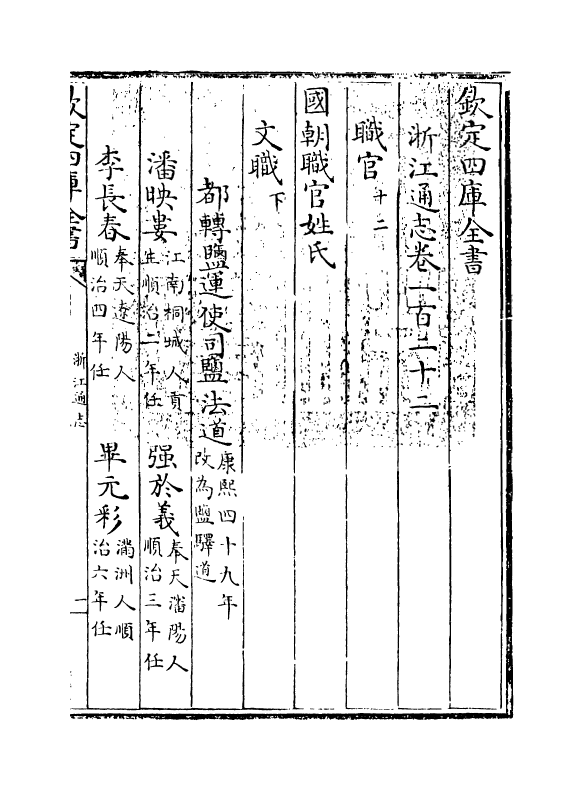 欽定四庫全書
浙江通志卷一百二十二
職官十二
國朝職官姓氏
文職下
都轉鹽運使司鹽法道康熙四十九年
改為鹽驛道
潘映婁江南桐城人貢
生順治二年任
强於義奉天瀋陽人
順治三年任
李長春奉天遼陽人
順治四年任
畢元彩滿洲人順
治六年任
欽定四庫全書
浙江通志
一